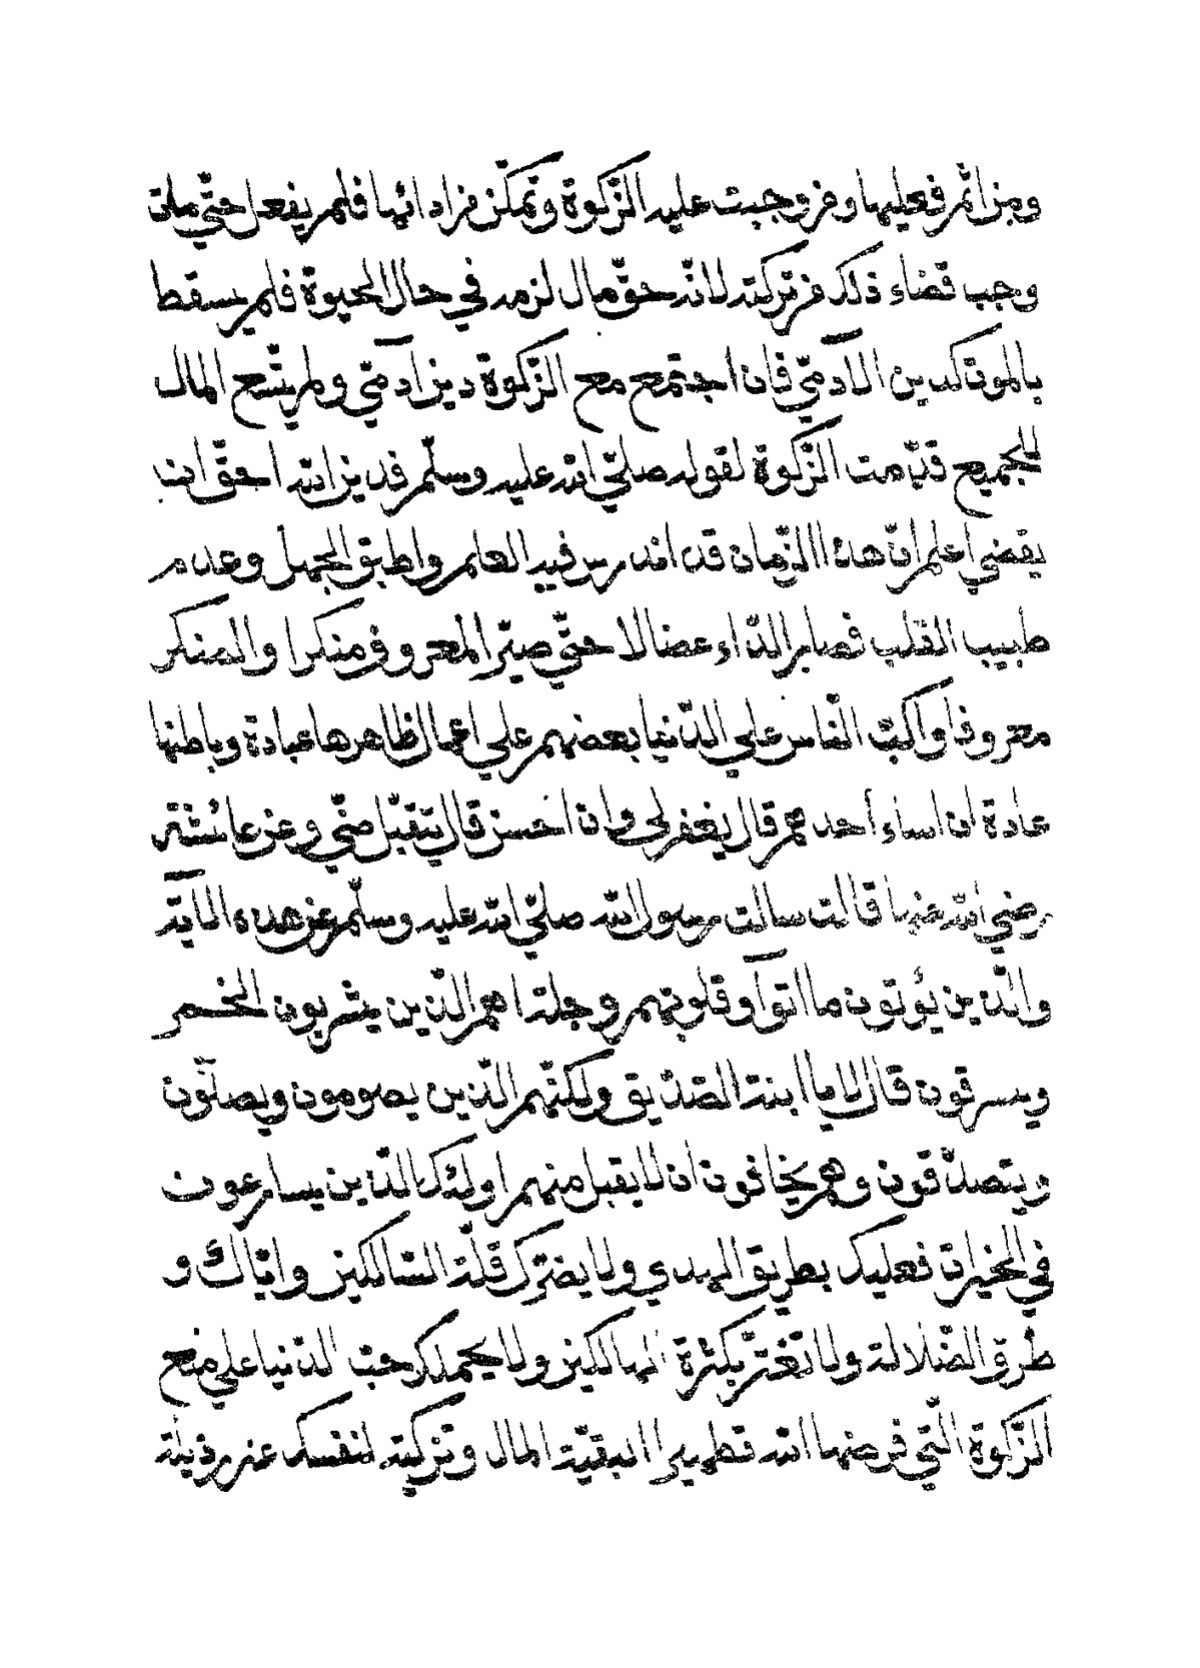 ومن اثم فعليها ومن وجبت عليه الزّكوة وتمكّن من ادائها فلم يفعل حتّي مات
وجب قضاء ذلك من تركته لانّه حقّ مال لزمه في حال الحيوة فلم يسقط
بالموت كدين الآدميّ فان اجتمع مع الزّكوة دين آدميّ ولم يتّسع المال
للجميع قدّمت الزّكوة لقوله صلّي الله عليه وسلّم فدين الله احقّ ان
يقضي اعلم انّ هذا الزّمان قد اندرس فيه العلم واطبق الجهل وعدم
طبيب القلب فصار الدّاء عضالا حتّي صيّر المعروف منكرا والمنكر
معروفا واكبّ النّاس علي الدّنيا بعضهم علي اعمال ظاهرها عبادة وباطنها
عادة ان اساء احدهم قال يغفر لي وان احسن قال يتقبّل منّي وعن عائشة
رضي الله عنها قالت سالت رسول الله صلّي الله عليه وسلّم عن هذه الآية
والّذين يؤتون ما اتوآ وقلوبهم وجلة اهم الّذين يشربون الخمر
ويسرقون قال لا يا ابنة الصّدّيق ولكنّهم الّذين يصومون ويصلّون
ويتصدّقون وهم يخافون ان لا يقبل منهم اولئك الّذين يسارعون
في الخيرات فعليك بطريق الهدي ولا يضرّك قلّة السّالكين وايّاك و
طرق الضّلالة ولا تغترّ بكثرة الهالكين ولا يحملك حبّ الدّنيا علي منع
الزّكوة الّتي فرضها الله تطهيرا لبقيّة المال وتزكية لنفسك عن رذيلة